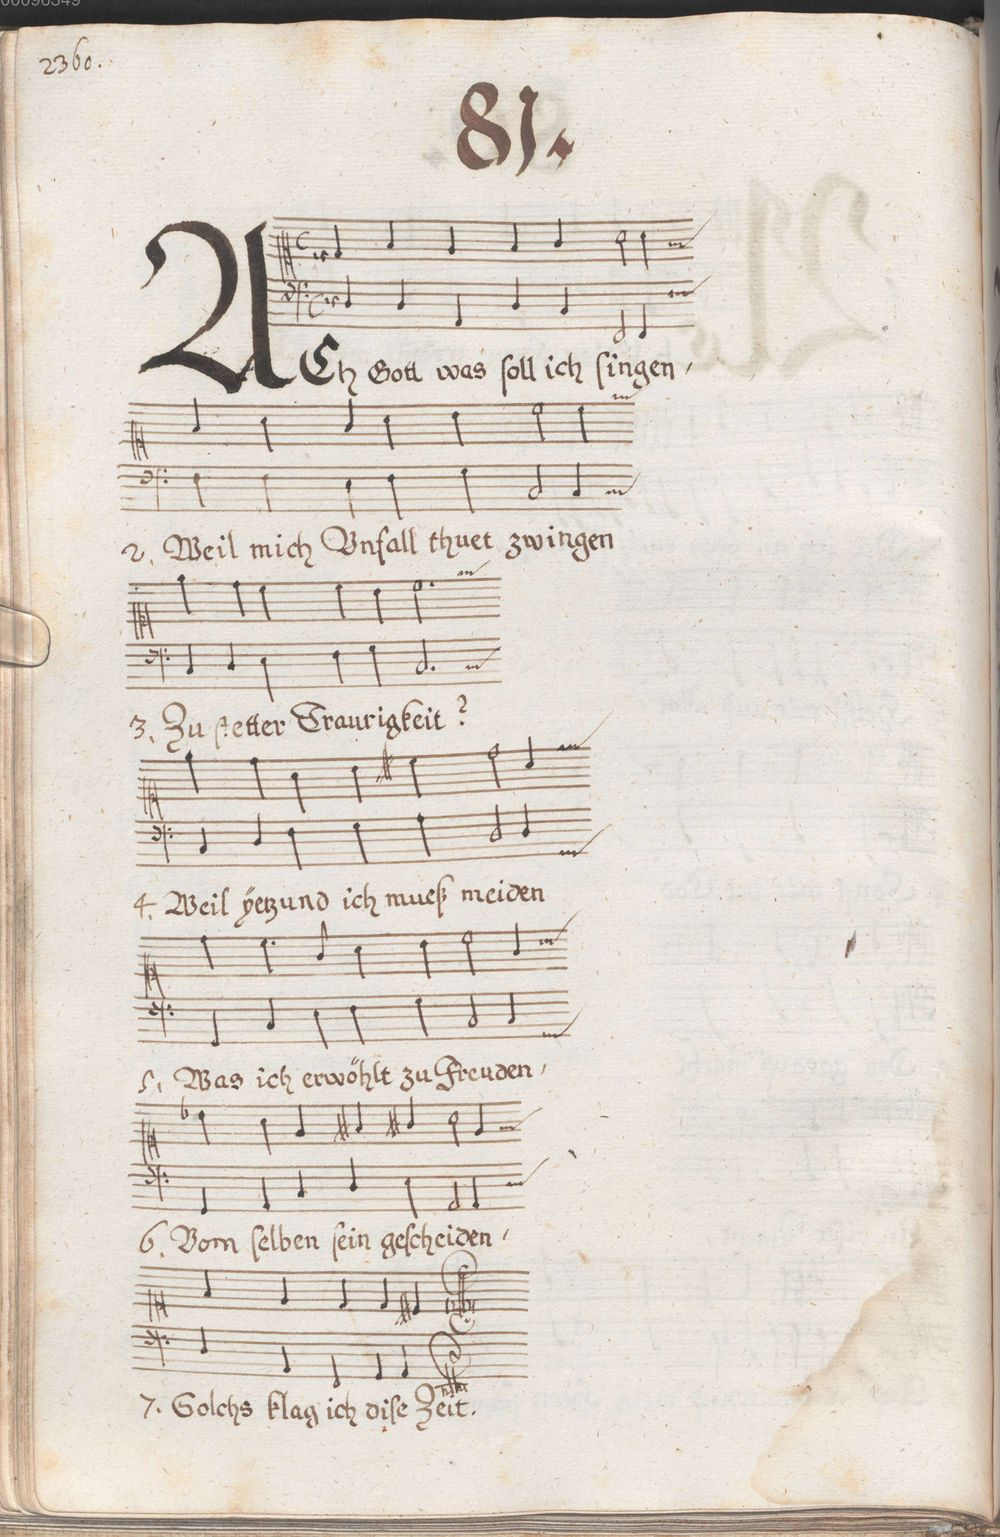 00096349
2360.
81.
ACh Gott was soll ich singen,
2. Weil mich Vnfall thuet zwingen
3. Zu stetter Traurigkeit?
4. Weil ÿetzund ich mueß meiden
5. Was ich erwöhlt zu Freuden,
6. Vom selben sein gescheiden,
7. Solchs klag ich dise Zeit.